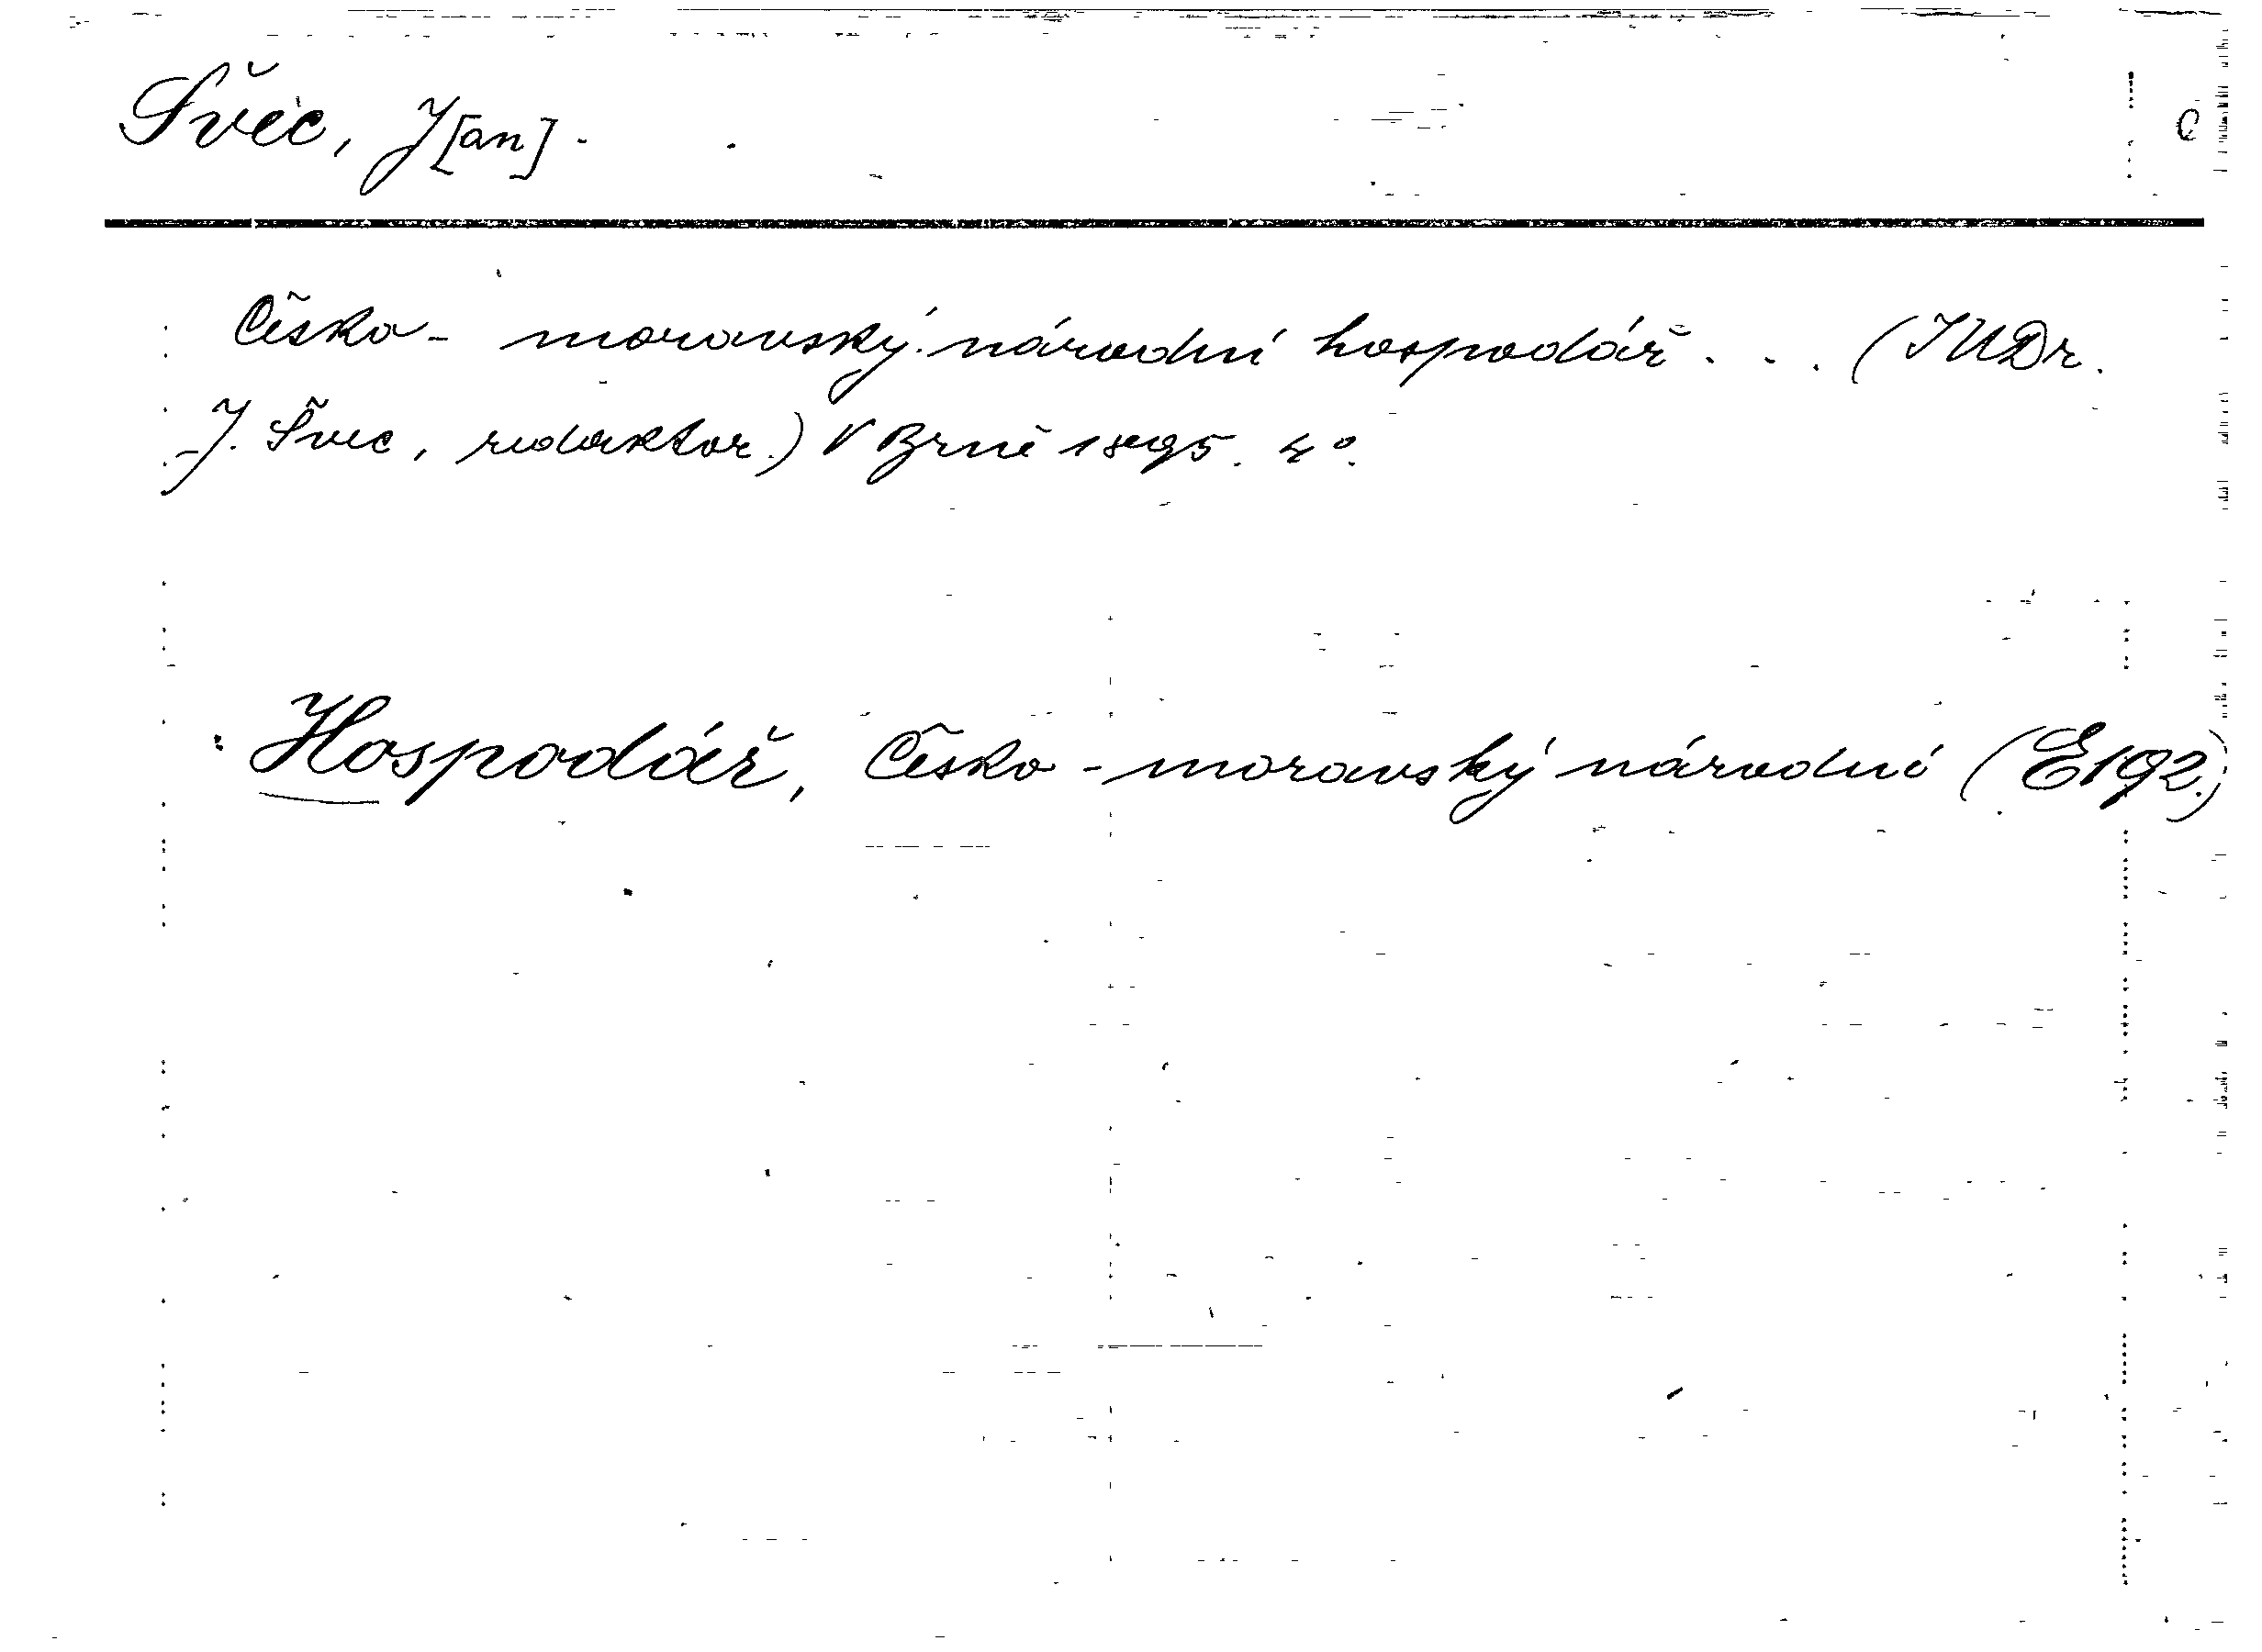 Švec, J[an].
Česko-moravský národní hospodář... (JUDr.
J. Švec, redaktor.) V Brně 1895. 4°.
Hospodář, Česko-moravský národní (E192.)